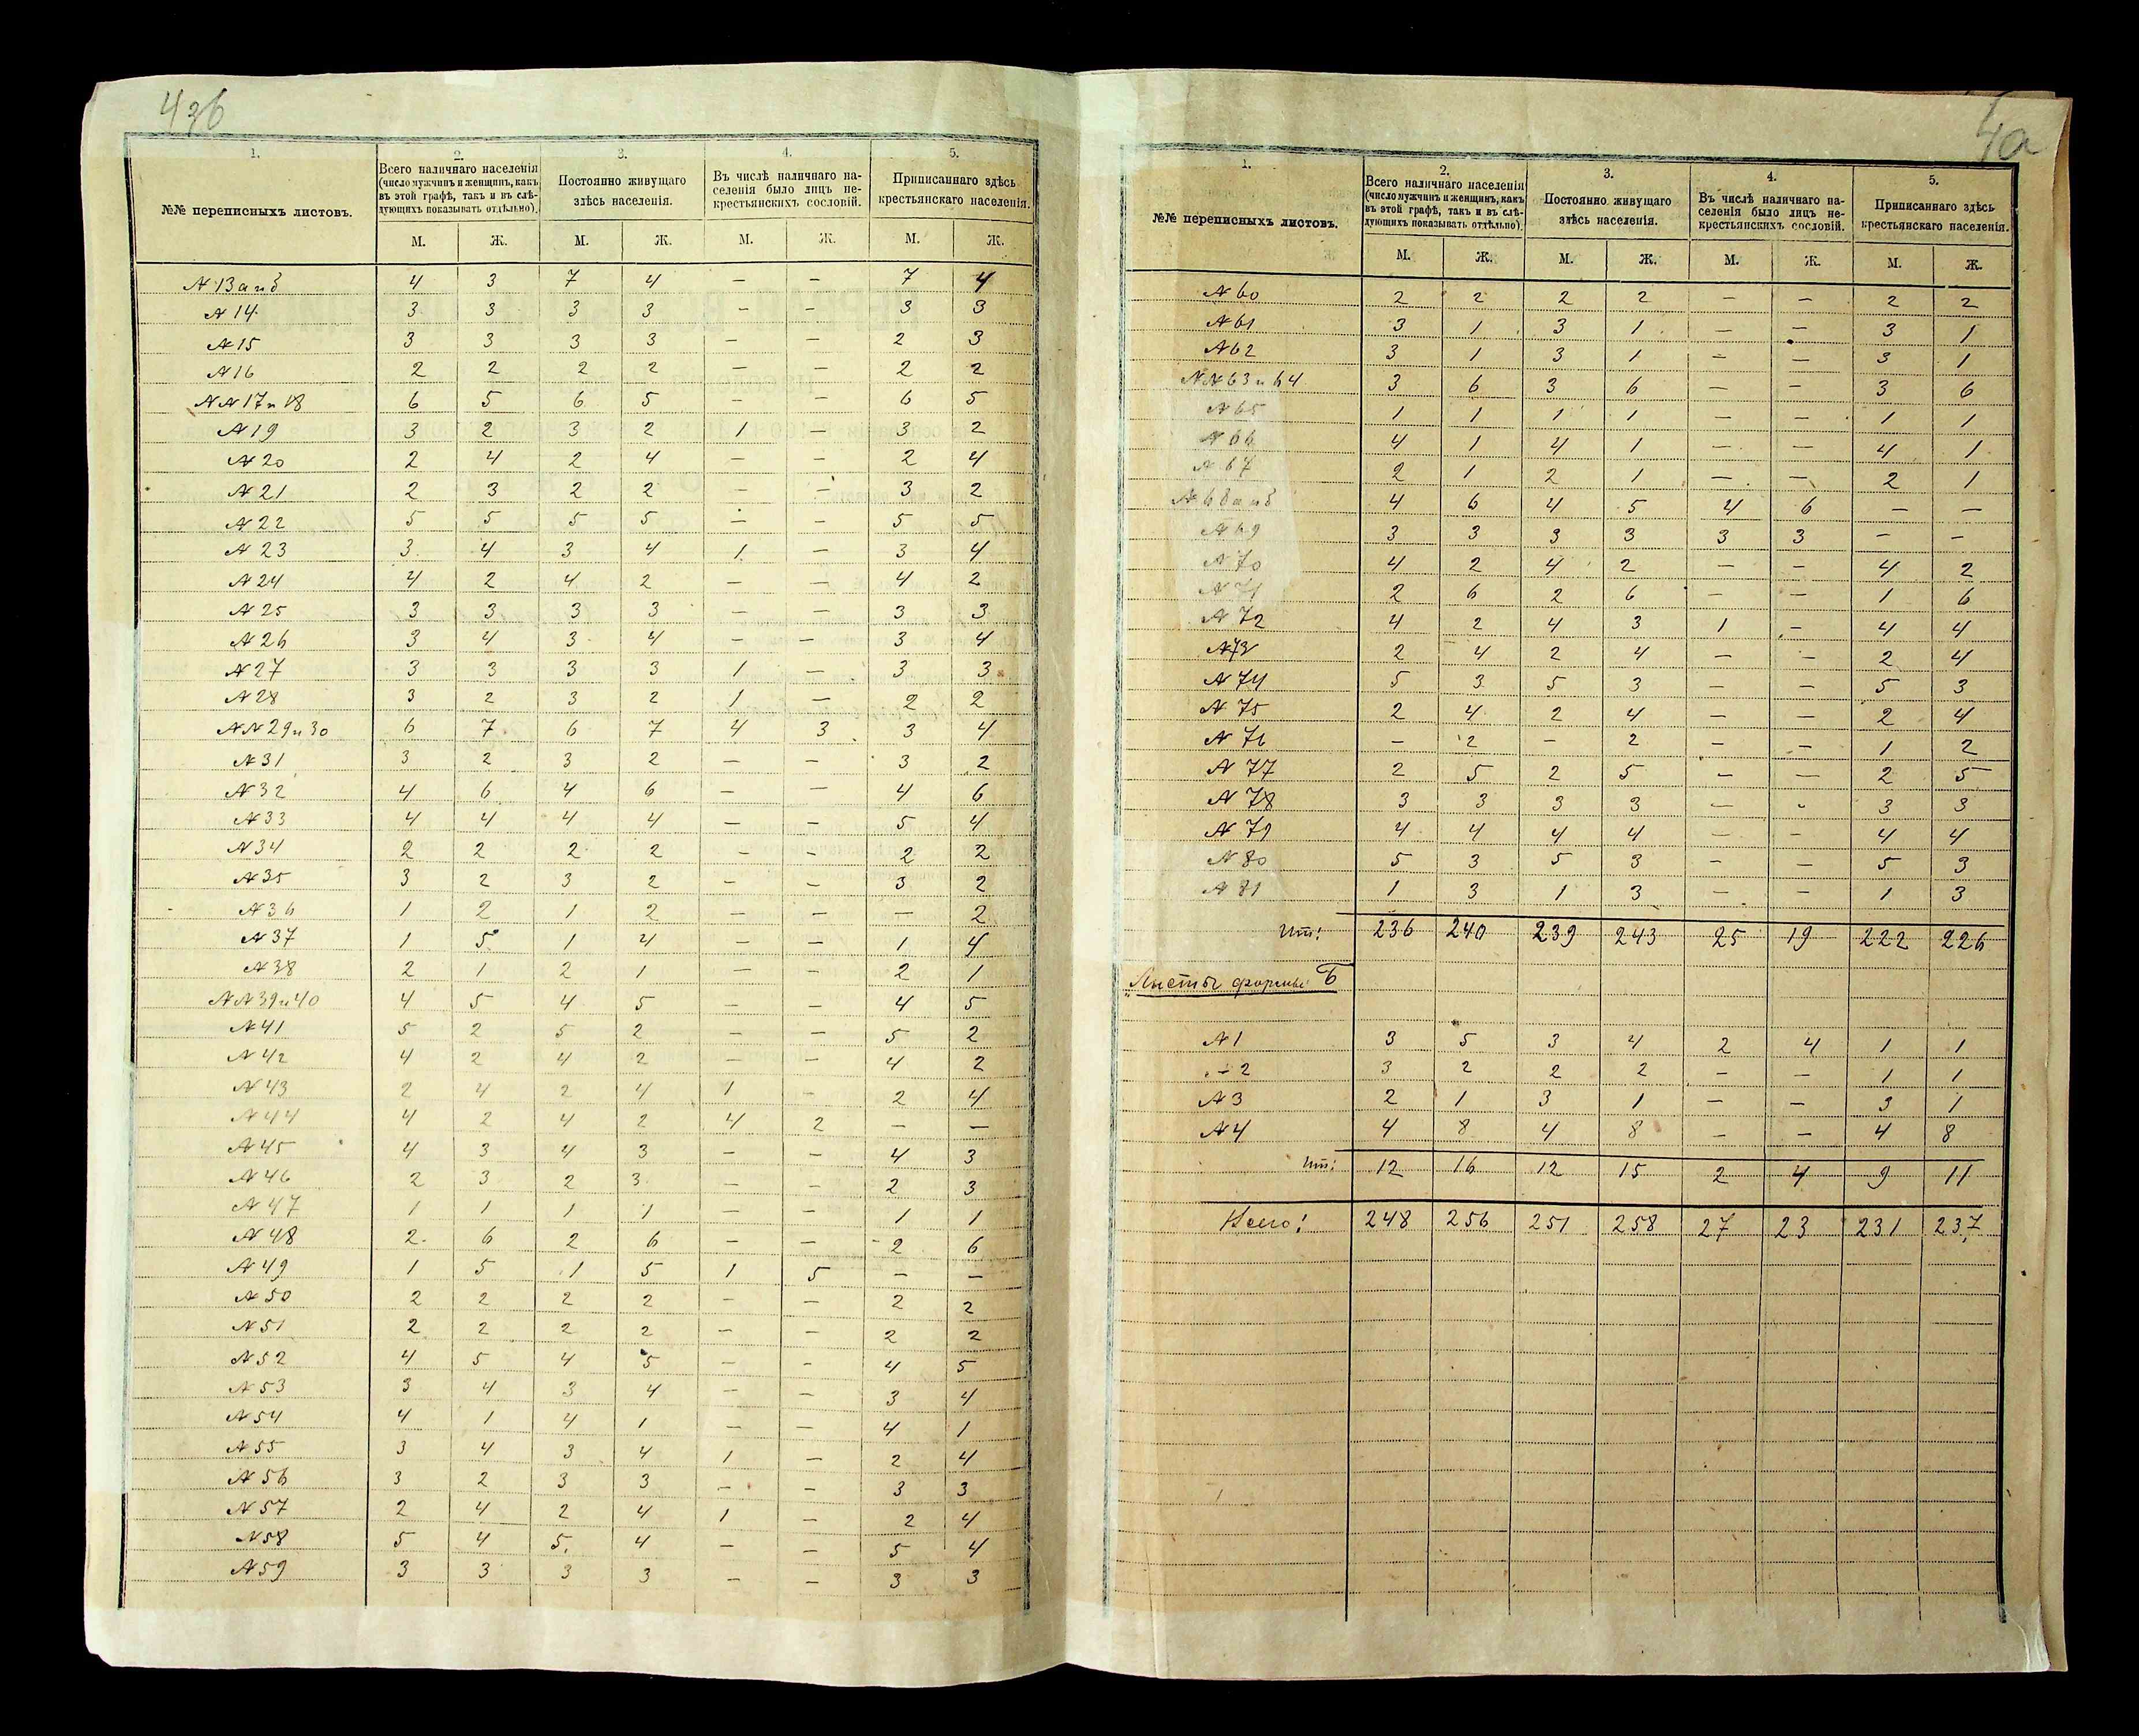 43б
1. 2. 3. 4. 5.
№№ переписныхъ листовъ.
Всего наличнаго населенія
(число мужчинъ и женщинъ, какъ
въ этой графѣ, такъ и въ слѣ-
дующихъ показывать отдѣльно).
Постоянно живущаго
здѣсь населенія.
Въ числѣ наличнаго на-
селенія было лицъ не-
крестьянскихъ сословій.
Приписаннаго здѣсь
крестьянскаго населенія.
М. Ж. М. Ж. М. Ж. М. Ж.
№ 13 а и б 4 3 7 4 — — 7 4
№ 14 3 3 3 3 — — 3 3
№ 15 3 3 3 3 — — 2 3
№ 16 2 2 2 2 — — 2 2
№№ 17 и 18 6 5 6 5 — — 6 5
№ 19 3 2 3 2 1 — 3 2
№ 20 2 4 2 4 — — 2 4
№ 21 2 3 2 2 — — 3 2
№ 22 5 5 5 5 — — 5 5
№ 23 3 4 3 4 1 — 3 4
№ 24 4 2 4 2 — — 4 2
№ 25 3 3 3 3 — — 3 3
№ 26 3 4 3 4 — — 3 4
№ 27 3 3 3 3 1 — 3 3
№ 28 3 2 3 2 1 — 2 2
№№ 29 и 30 6 7 6 7 4 3 3 4
№ 31 3 2 3 2 — — 3 2
№ 32 4 6 4 6 — — 4 6
№ 33 4 4 4 4 — — 5 4
№ 34 2 2 2 2 — — 2 2
№ 35 3 2 3 2 — — 3 2
№ 36 1 2 1 2 — — — 2
№ 37 1 5 1 4 — — 1 4
№ 38 2 1 2 1 — — 2 1
№№ 39 и 40 4 5 4 5 — — 4 5
№ 41 5 2 5 2 — — 5 2
№ 42 4 2 4 2 — — 4 2
№ 43 2 4 2 4 1 — 2 4
№ 44 4 2 4 2 4 2 — —
№ 45 4 3 4 3 — — 4 3
№ 46 2 3 2 3 — — 2 3
№ 47 1 1 1 1 — — 1 1
№ 48 2 6 2 6 — — 2 6
№ 49 1 5 1 5 1 5 — —
№ 50 2 2 2 2 — — 2 2
№ 51 2 2 2 2 — — 2 2
№ 52 4 5 4 5 — — 4 5
№ 53 3 4 3 4 — — 3 4
№ 54 4 1 4 1 — — 4 1
№ 55 3 4 3 4 1 — 2 4
№ 56 3 2 3 3 — — 3 3
№ 57 2 4 2 4 1 — 2 4
№ 58 5 4 5 4 — — 5 4
№ 59 3 3 3 3 — — 3 3
4а
1. 2. 3. 4. 5.
№№ переписныхъ листовъ.
Всего наличнаго населенія
(число мужчинъ и женщинъ, какъ
въ этой графѣ, такъ и въ слѣ-
дующихъ показывать отдѣльно).
Постоянно живущаго
здѣсь населенія.
Въ числѣ наличнаго на-
селенія было лицъ не-
крестьянскихъ сословій.
Приписаннаго здѣсь
крестьянскаго населенія.
М. Ж. М. Ж. М. Ж. М. Ж.
№ 60 2 2 2 2 — — 2 2
№ 61 3 1 3 1 — — 3 1
№ 62 3 1 3 1 — — 3 1
№№ 63 и 64 3 6 3 6 — — 3 6
№ 65 1 1 1 1 — — 1 1
№ 66 4 1 4 1 — — 4 1
№ 67 2 1 2 1 — — 2 1
№ 68 а и б 4 6 4 5 4 6 — —
№ 69 3 3 3 3 3 3 — —
№ 70 4 2 4 2 — — 4 2
№ 71 2 6 2 6 — — 1 6
№ 72 4 2 4 3 1 — 4 4
№ 73 2 4 2 4 — — 2 4
№ 74 5 3 5 3 — — 5 3
№ 75 2 4 2 4 — — 2 4
№ 76 — 2 — 2 — — 1 2
№ 77 2 5 2 5 — — 2 5
№ 78 3 3 3 3 — - 3 3
№ 79 4 4 4 4 — — 4 4
№ 80 5 3 5 3 — — 5 3
№ 81 1 3 1 3 — — 1 3
Ит: 236 240 239 243 25 19 222 226
Листы формы Б
№ 1 3 5 3 4 2 4 1 1
— 2 3 2 2 2 — — 1 1
№ 3 2 1 3 1 — — 3 1
№ 4 4 8 4 8 — — 4 8
Ит: 12 16 12 15 2 4 9 11
Всего: 248 256 251 258 27 23 231 237